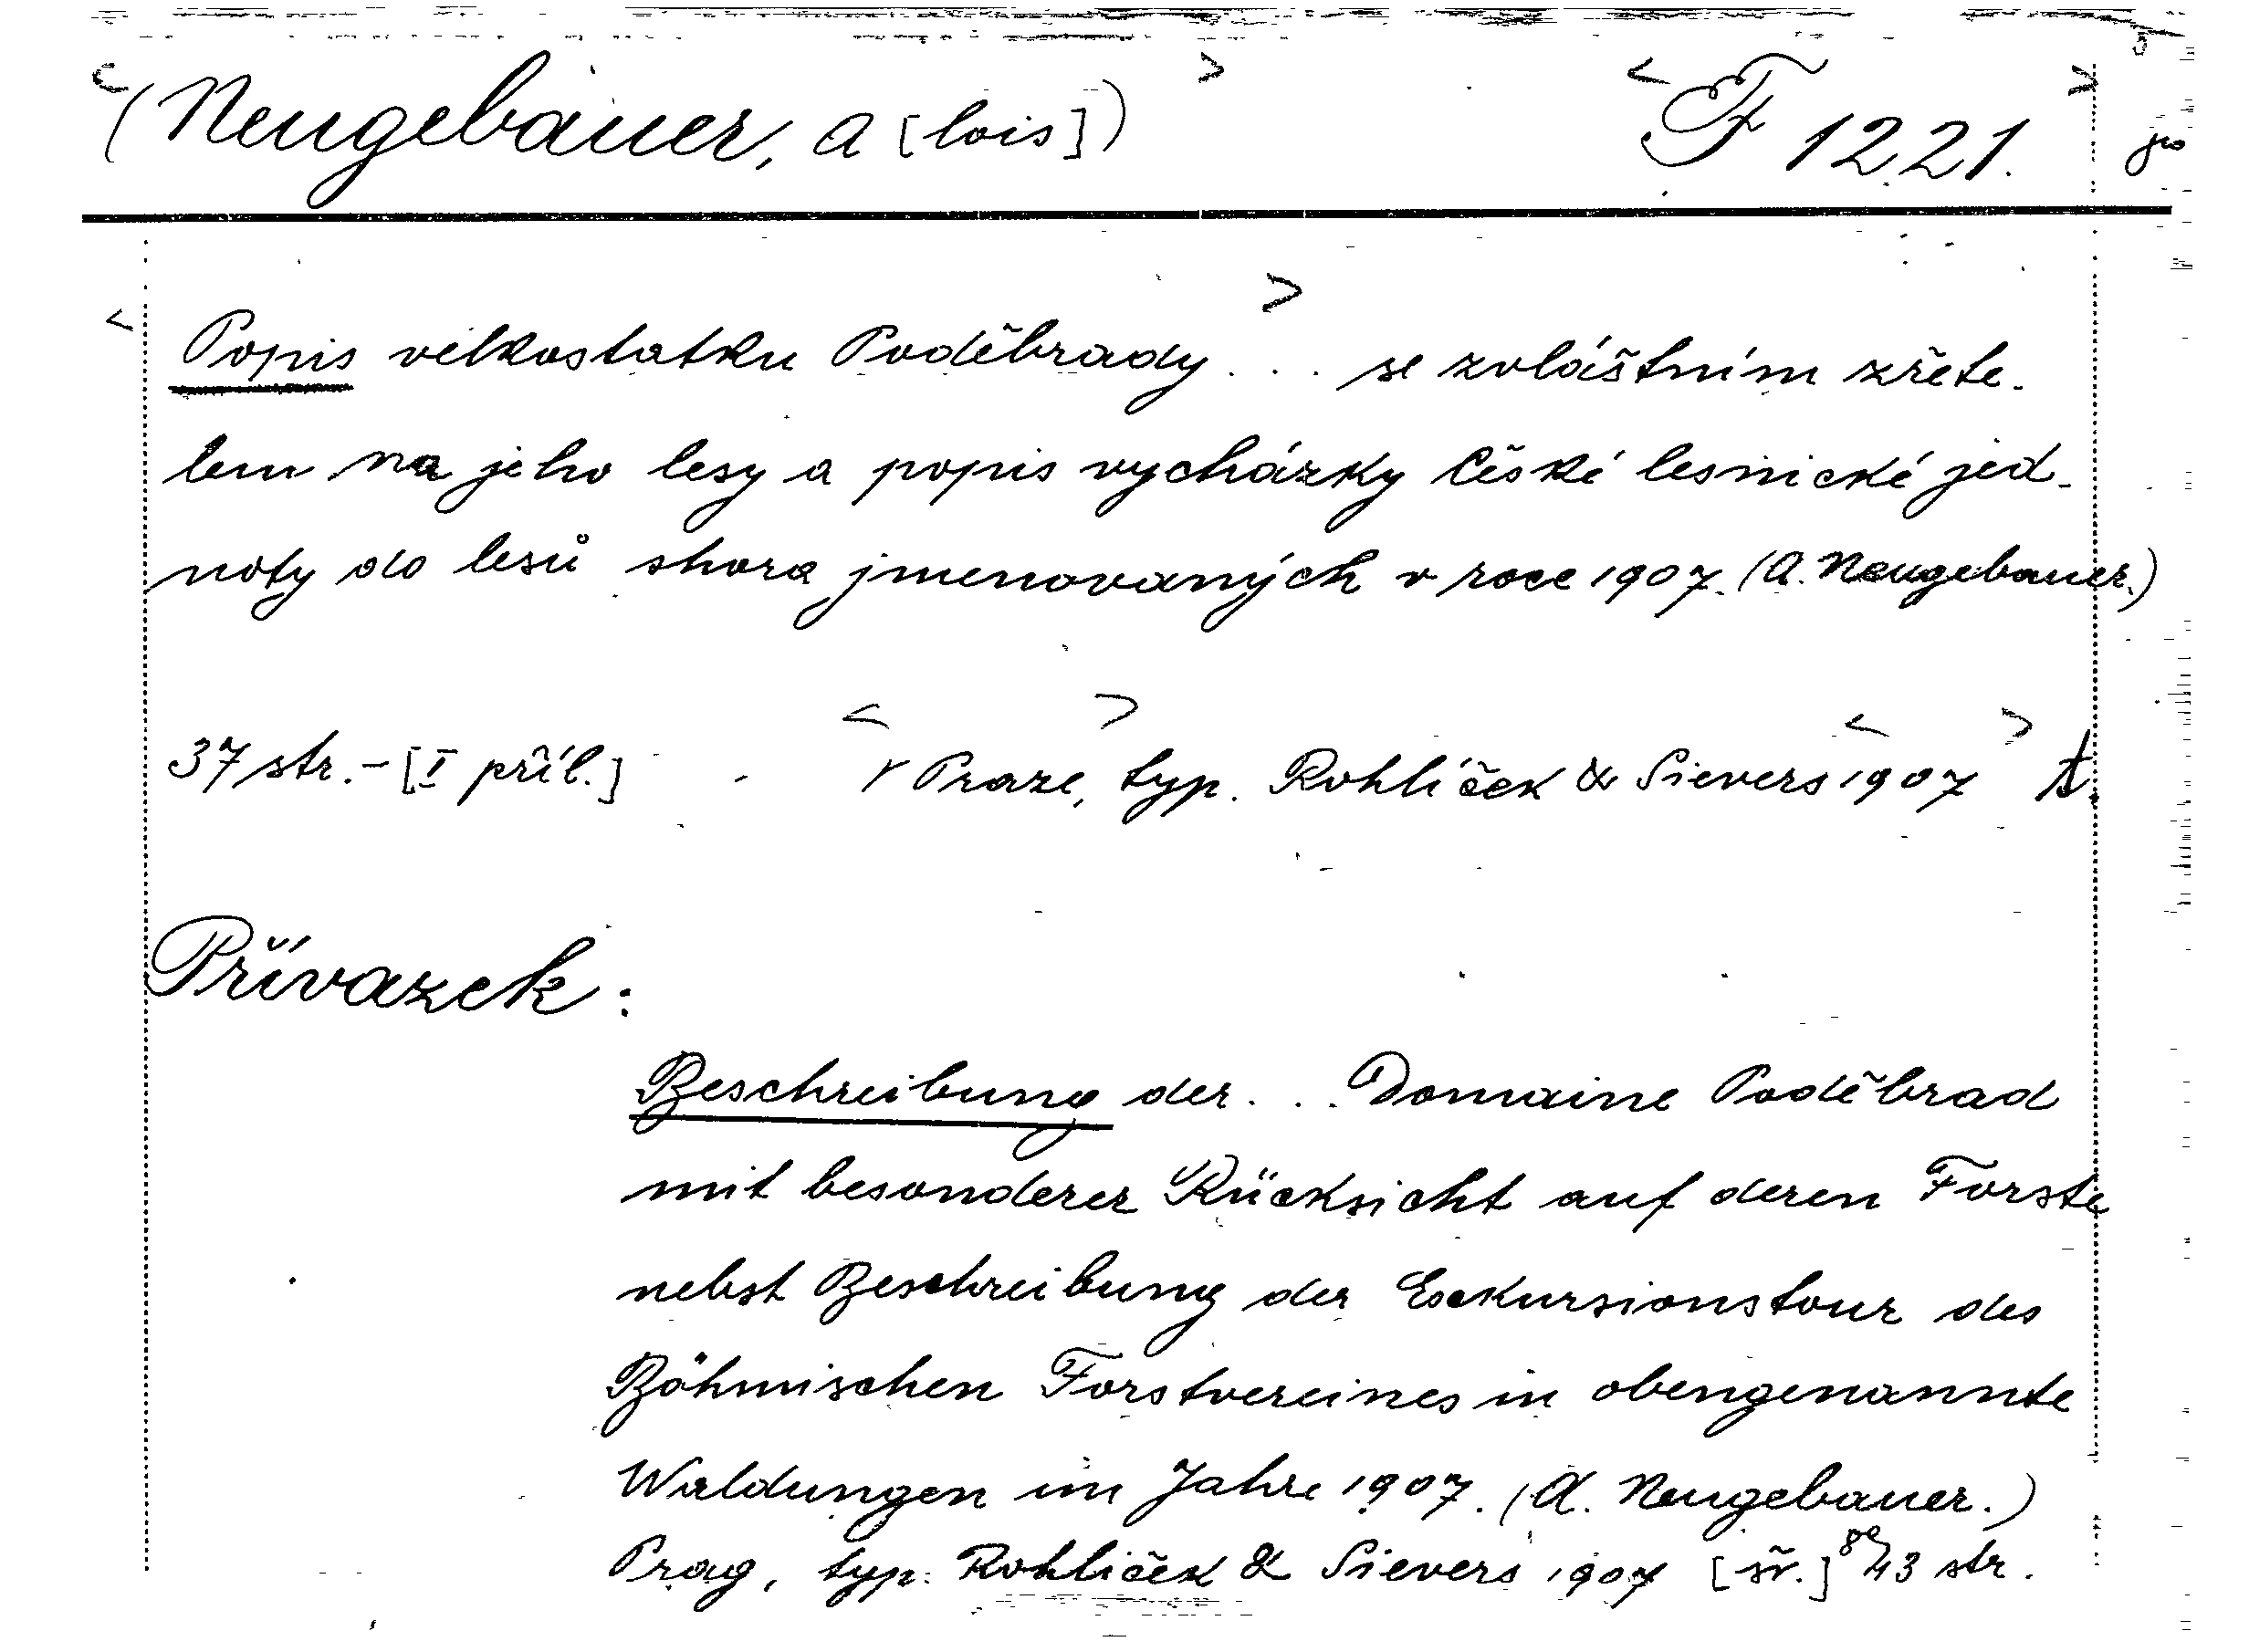 (Neugebauer, A[lois]) F 1221.
Popis velkostatku Poděbrady ... se zvláštním zřete-
lem na jeho lesy a popis vycházky České lesnické jed-
noty do lesů shora jmenovaných v roce 1907. (A. Neugebauer.)
37 str. - [I příl.] V Praze, typ. Rohlíček & Sievers 1907
Přívazek:
Beschreibung der ... Domaine Poděbrad
mit besonderer Rücksicht auf deren Forste
nebst Beschreibung der Exkursionstour des
Böhmischen Forstvereines in obengenannte
Waldungen im Jahre 1907. (A. Neugebauer.)
Prag, typ. Rohlíček & Sievers 1907 8° 43 str.